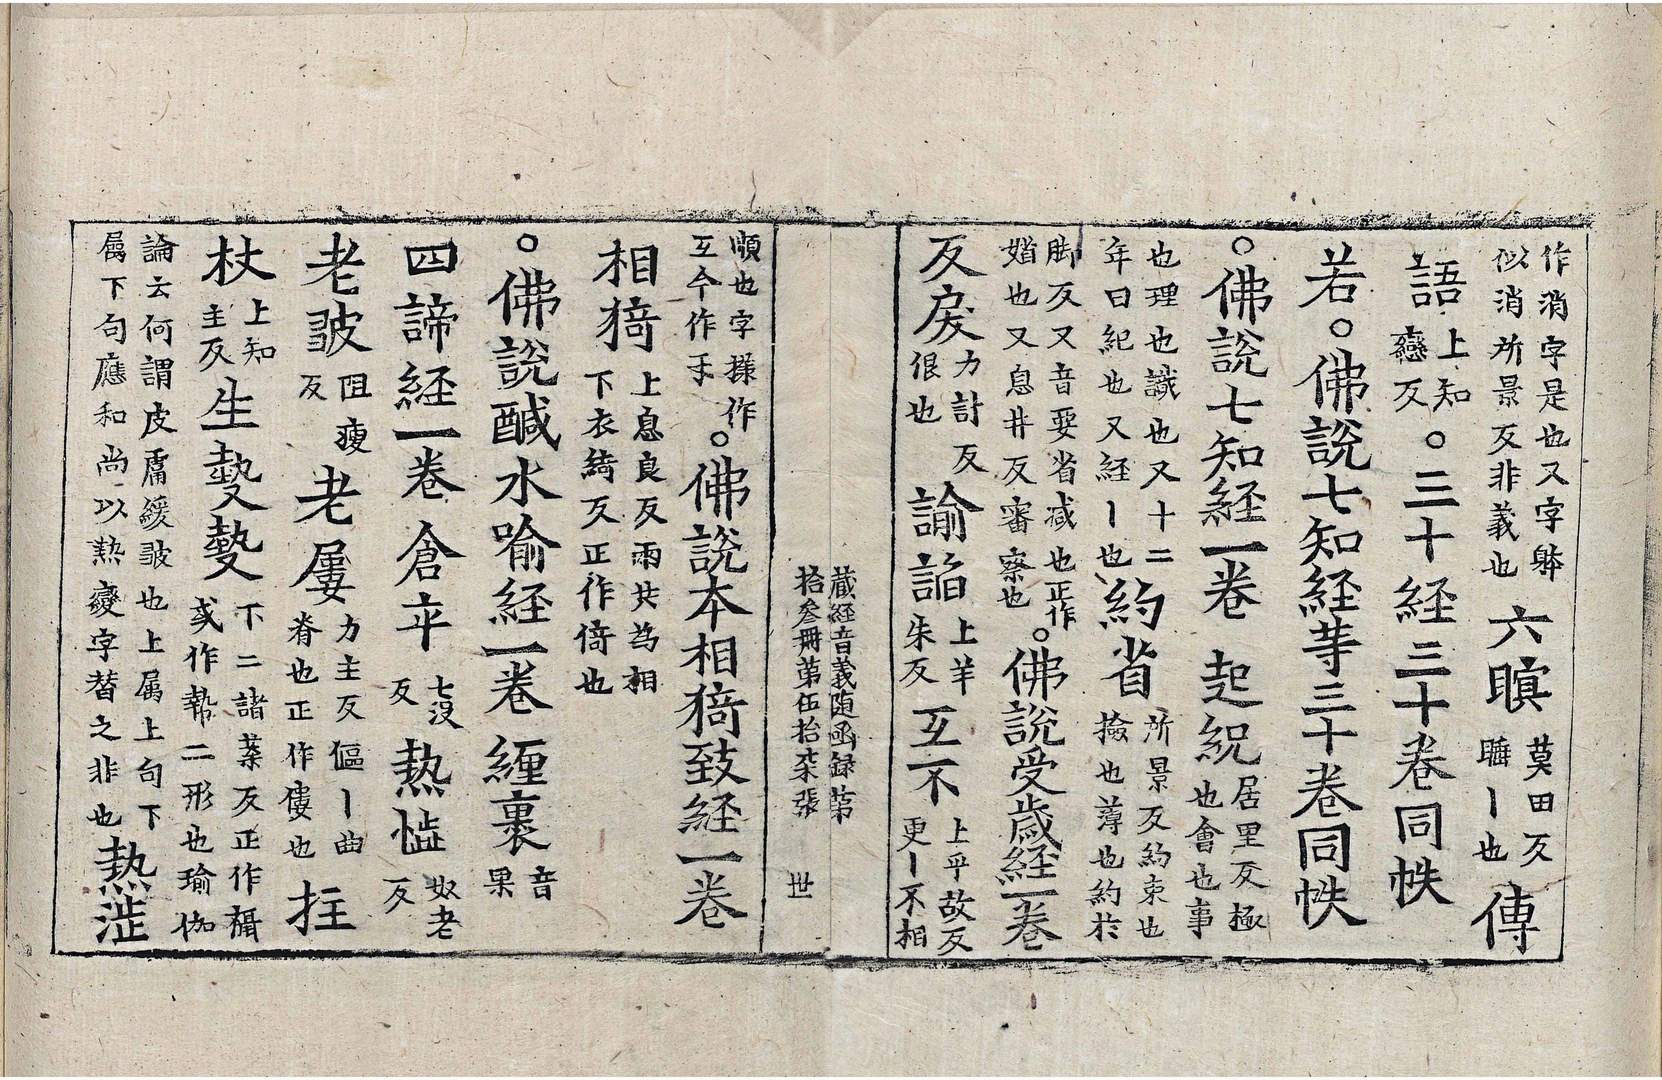 作消字是也又字躰
似消所景反非義也六瞑莫田反
睡丨也傳
語上知
戀反。三十経三十卷同帙
若。佛說七知経等三十卷同帙
。佛說七知経一卷起䋖居里反極
也會也事
也理也識也又十二
年曰紀也又経丨也約省所景反約束也
撿也薄也約扵
脚反又音要省减也正作
媘也又息井反審察也。佛說受歲経一卷
反戾力計反
佷也諭䛕上羊
朱反互不上乎故反
更丨不相
蔵経音義随函録第
拾叄册第伍拾柒張 世
順也字樣作
互今作㸦。佛說本相猗致経一卷
相猗上息良反兩共為相
下衣綺反正作倚也
。佛說鹹水喻経一卷纒裹音
果
四諦経一卷倉卒七没
反熱惱奴老
反
老皷阻瘦
反老屢力主反傴丨曲
脊也正作僂也拄
杖上知
主反生㙯㙯下二諸葉反正作檋
或作㙷二形也瑜伽
論云何謂皮膚緩皷也上属上句下
属下句應和尚以熱變字替之非也熱澁